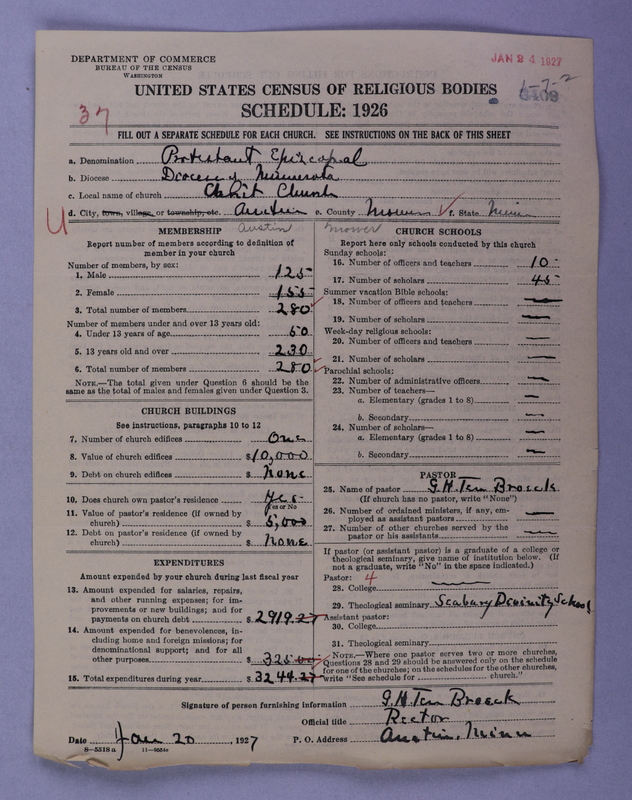 DEPARTMENT OF COMMERCE
BUREAU OF THE CENSUS
WASHINGTON
JAN 24 1927
UNITED STATES CENSUS OF RELIGIOUS BODIES
SCHEDULE: 1926
37
FILL OUT A SEPARATE SCHEDULE FOR EACH CHURCH. SEE INSTRUCTIONS ON THE BACK OF THIS SHEET
a. Denomination Protestant Episcopal
b. Diocese Diocese of Minnesota
c. Local name of church Christ Church
d. City, town, village, or township, etc. Austin e. County Mower f. State Minn
U
Austin Mower
MEMBERSHIP
Report number of members according to definition of member in your church
Number of members, by sex:
1. Male 125
2. Female 155
3. Total number of members 280
Number of members under and over 13 years old:
4. Under 13 years of age 50
5. 13 years old and over 230
6. Total number of members 280
NOTE.—The total given under Question 6 should be the
same as the total of males and females given under Question 3.
CHURCH BUILDINGS
See instructions, paragraphs 10 to 12
7. Number of church edifices One
8. Value of church edifices $10,000
9. Debt on church edifices $ None
10. Does church own pastor's residence Yes
Yes or No
11. Value of pastor's residence (if owned by
church) $ 5,000
12. Debt on pastor's residence (if owned by
church) $ None
EXPENDITURES
Amount expended by your church during last fiscal year
13. Amount expended for salaries, repairs,
and other running expenses; for im-
provements or new buildings; and for
payments on church debt $ 2919.27
14. Amount expended for benevolences, in-
cluding home and foreign missions; for
denominational support; and for all
other purposes $ 325.00
15. Total expenditures during year $ 3244.27
CHURCH SCHOOLS
Report here only schools conducted by this church
Sunday schools:
16. Number of officers and teachers 10
17. Number of scholars 45
Summer vacation Bible schools:
18. Number of officers and teachers —
19. Number of scholars —
Week-day religious schools:
20. Number of officers and teachers —
21. Number of scholars —
Parochial schools:
22. Number of administrative officers —
23. Number of teachers—
a. Elementary (grades 1 to 8) —
b. Secondary —
24. Number of scholars—
a. Elementary (grades 1 to 8) —
b. Secondary —
PASTOR
25. Name of pastor G.H. Ten Broeck
(If church has no pastor, write "None")
26. Number of ordained ministers, if any, em-
ployed as assistant pastors —
27. Number of other churches served by the
pastor or his assistants —
If pastor (or assistant pastor) is a graduate of a college or
theological seminary, give name of institution below. (If
not a graduate, write "No" in the space indicated.)
Pastor: 4
28. College —
29. Theological seminary Seabury Divinity School
Assistant pastor:
30. College
31. Theological seminary
NOTE.—Where one pastor serves two or more churches,
Questions 28 and 29 should be answered only on the schedule
for one of the churches; on the schedules for the other churches,
write "See schedule for church."
Signature of person furnishing information G.H. Ten Broeck
Official title Rector
Date Jan 20, 1927 P. O. Address Austin, Minn
8-5518 a